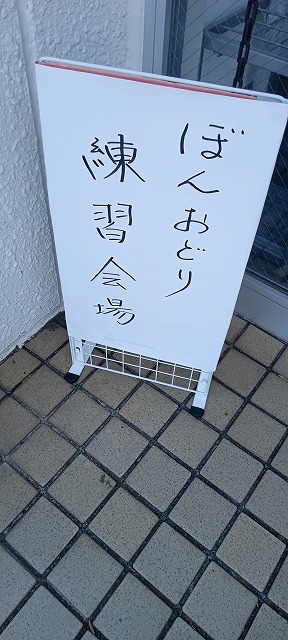 ぼんおどり
練習会場